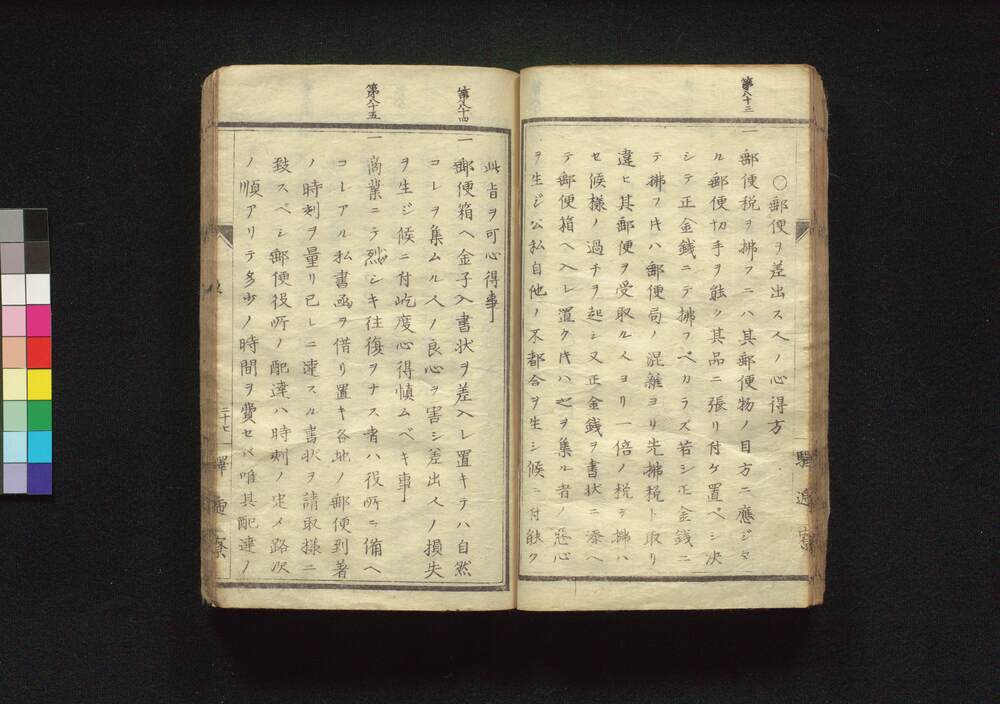 ○郵便ヲ差出ス人ノ心得方
第八十三
一郵便税ヲ拂フニハ其郵便物ノ目方ニ應ジタ
ル郵便切手ヲ能ク其品ニ張リ付ケ置ベシ決
シテ正金銭ニテ拂フベカラズ若シ正金銭ニ
テ拂フ𪜈ハ郵便局ノ混雜ヨリ先拂税ト取リ
違ヒ其郵便ヲ受取ル人ヨリ一倍ノ税ヲ拂ハ
セ候様ノ過チヲ起シ又正金銭ヲ書状ニ添ヘ
テ郵便箱ヘ入レ置ク𪜈ハ之ヲ集ル者ノ惡心
ヲ生ジ公私自他ノ不都合ヲ生シ候ニ付能ク
驛逓寮
此旨ヲ可心得事
第八十四
一郵便箱ヘ金子入書状ヲ差入レ置キテハ自然
コレヲ集ムル人ノ良心ヲ害シ差出人ノ損失
ヲ生ジ候ニ付屹度心得慎ムベキ事
第八十五
一商業ニテ烈シキ往復ヲナス者ハ役所ニ備ヘ
コレアル私書凾ヲ借リ置キ各地ノ郵便到著
ノ時刻ヲ量リ已レニ達スル書状ヲ請取様ニ
致スベシ郵便役所ノ配達ハ時刻ノ定メ路次
ノ順アリテ多少ノ時間ヲ費セバ唯其配達ノ
二十七
驛逓寮